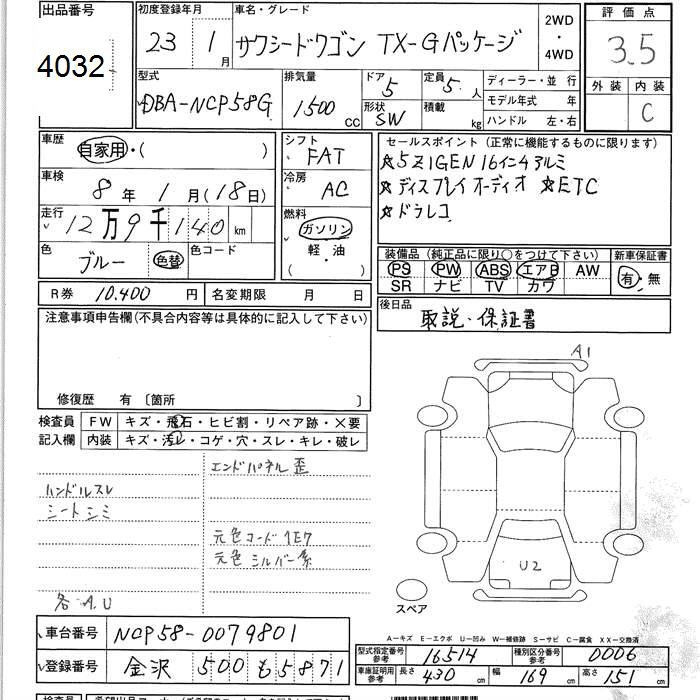 出品番号
4032
初度登録年月
23 1月
車名・グレード
サクシードワゴン TX-Gパッケージ
2WD
・
4WD
評価点
3.5
外装 内装
C
型式
DBA-NCP58G
排気量
1500 cc
ドア 5
形状 SW
定員 5人
積載 kg
ディーラー・並行
モデル年式 年
ハンドル 左・右
車歴
自家用・( )
車検
8年 1月(18日)
走行
12万9千140km
色
ブルー 色替
色コード
シフト
FAT
冷房
AC
燃料
ガソリン
軽・油
( )
セールスポイント(正常に機能するものに限ります)
☆5ZIGEN16インチアルミ
☆ディスプレイオーディオ ☆ETC
☆ドラレコ
装備品(純正品に限り○をつけて下さい)
PS PW ABS エアB AW
SR ナビ TV カワ
新車保証書
有・無
R券 10,400円
名変期限 月 日
後日品
取説・保証書
注意事項申告欄(不具合内容等は具体的に記入して下さい)
修復歴 有 〔箇所 〕
検査員
記入欄
FW キズ・飛石・ヒビ割・リペア跡・×要
内装 キズ・汚レ・コゲ・穴・スレ・キレ・破レ
エンドパネル歪
ハンドルスレ
シートシミ
元色コード 1E7
元色 シルバー系
各A.U
A1
U2
スペア
車台番号
NCP58-0079801
登録番号
金沢 500 も 5871
A-キズ E-エクボ U-凹み W-補修跡 S-サビ C-腐食 XX-交換済
型式指定番号
参考
16514
種別区分番号
参考
0006
車庫証明用
参考
長さ 430cm
幅 169cm
高さ 151cm